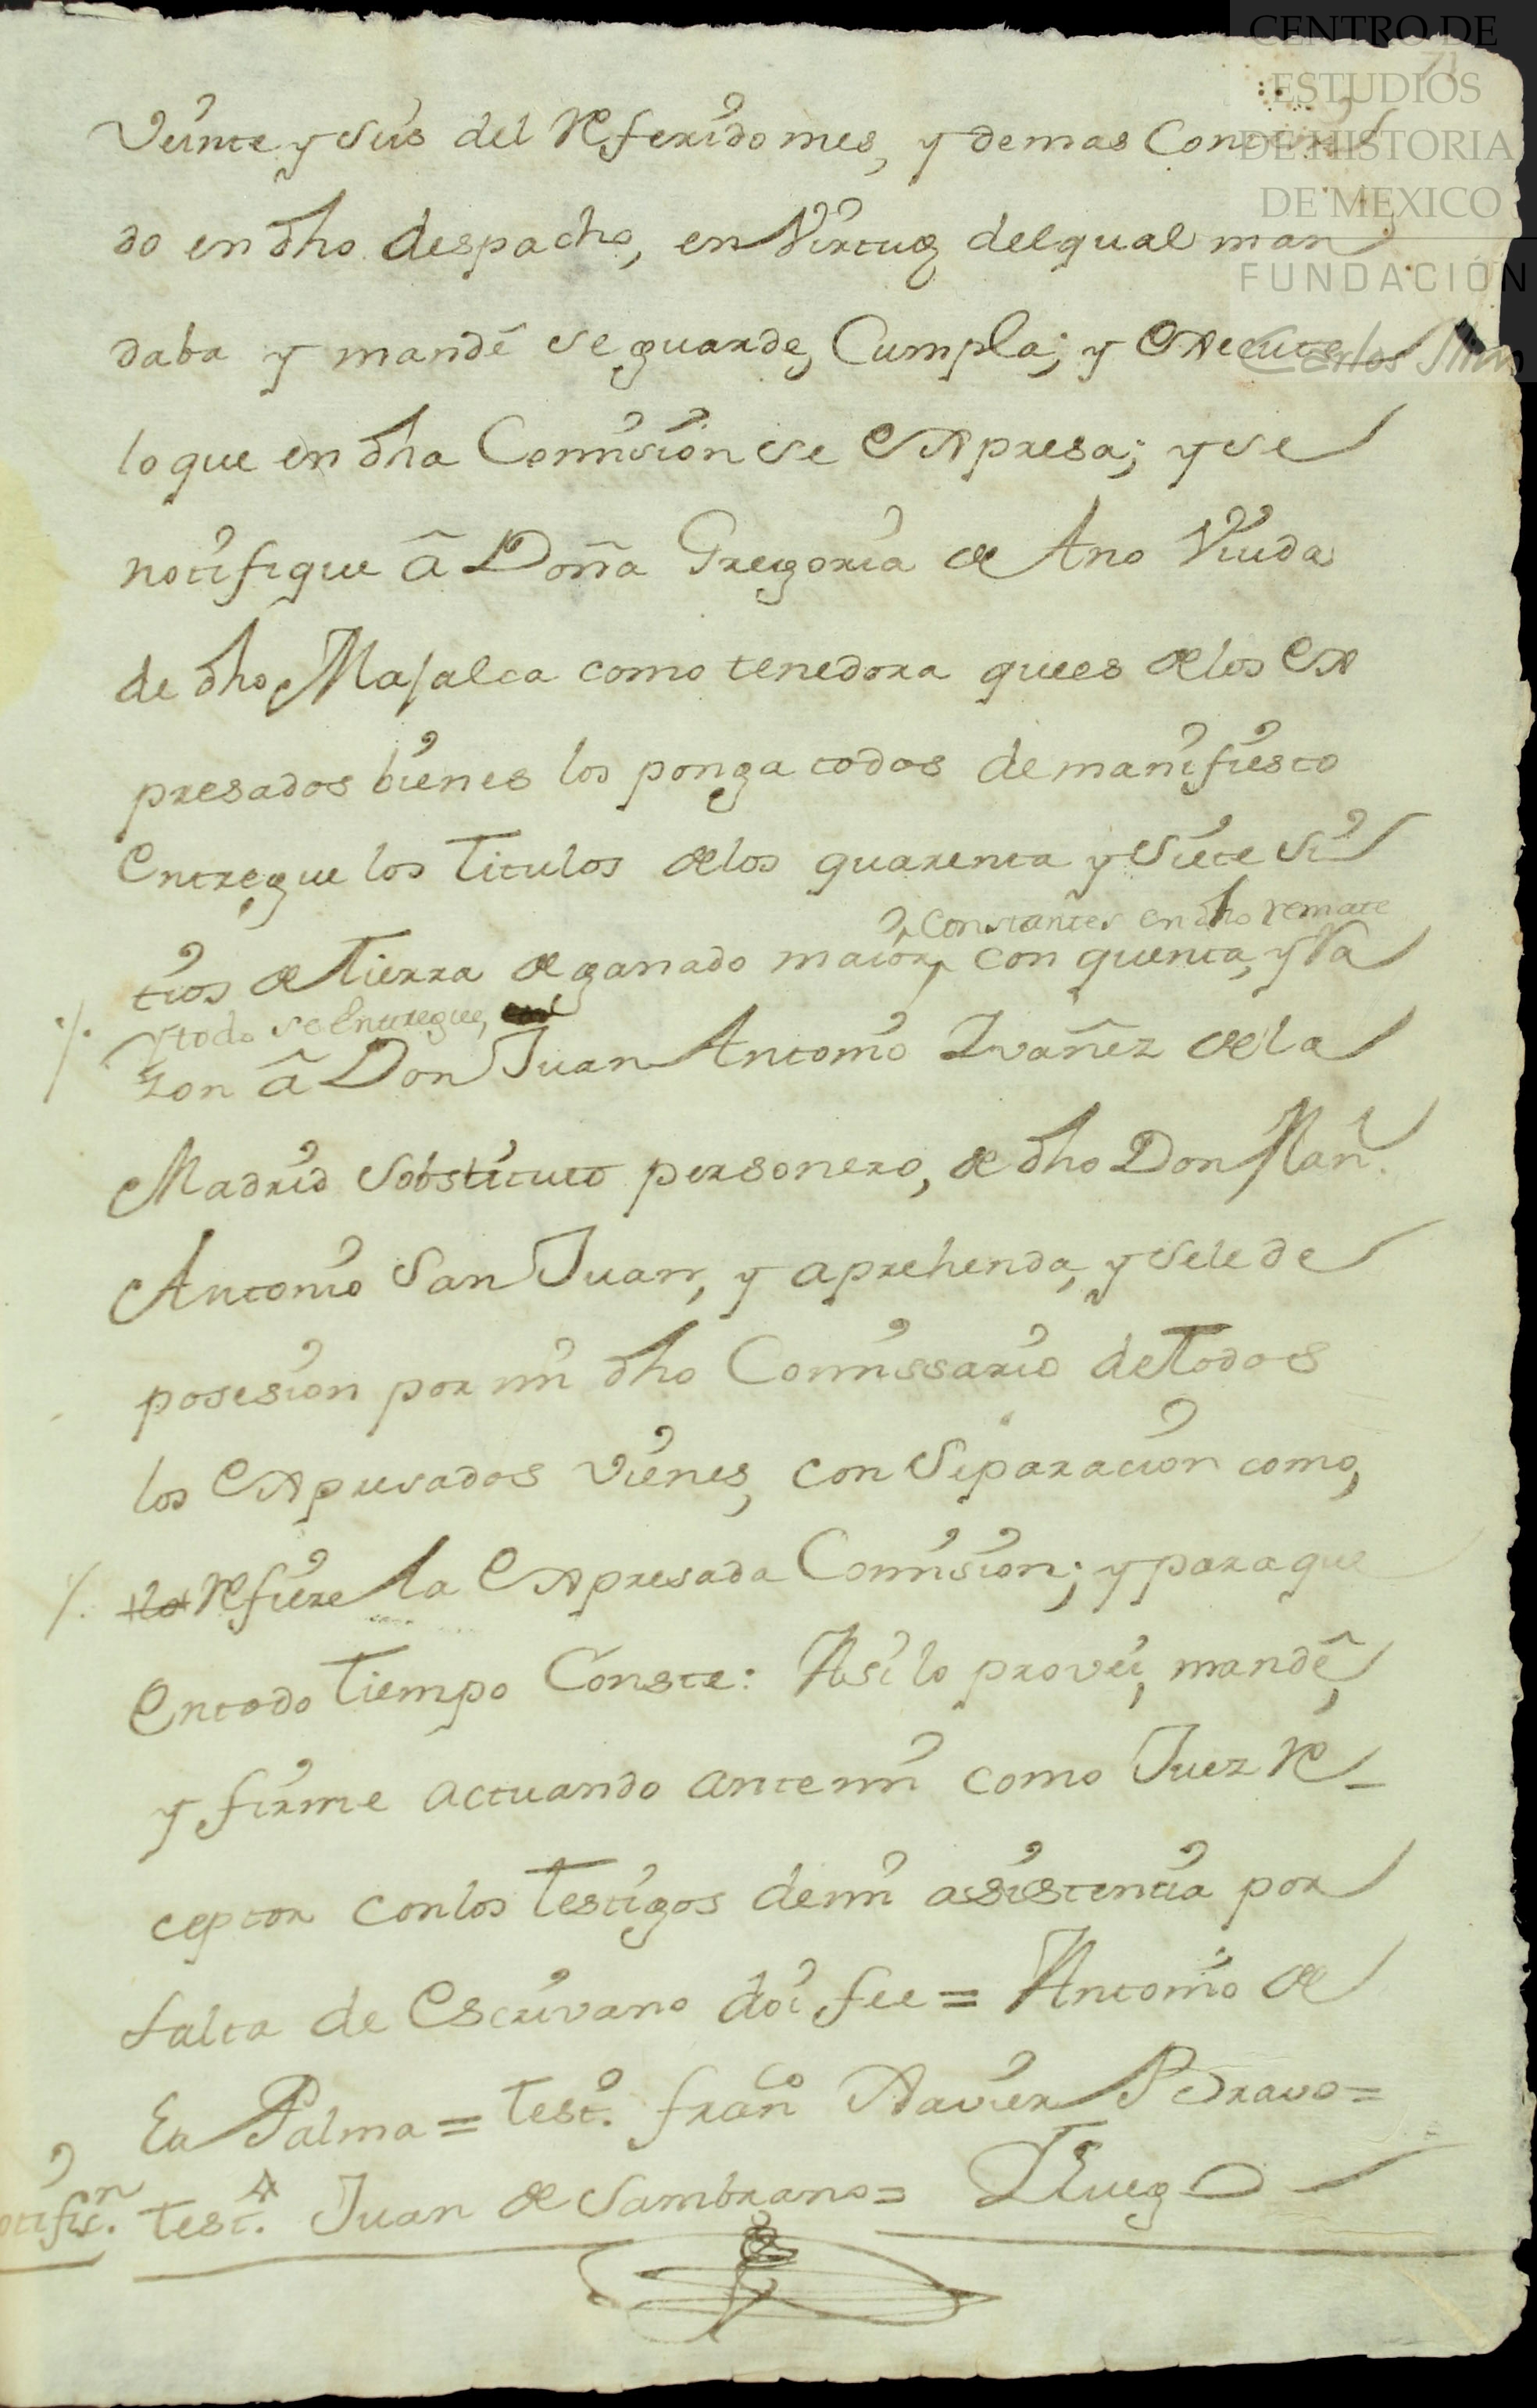 CENTRO DE
ESTUDIOS
DE HISTORIA
DE MEXICO
FUNDACIÓN
Carlos Slim
71
Veinte y seis del Referido mes, y demas Conteni
do en dho despacho, en Virtud del qual man
daba y mandê se guarde, Cumpla; y execute
lo que en dha Comision se expresa; y se
notifique â Doña Gregoria de Ano Viuda
de dho Majalca como tenedora que es de los ex
presados bienes los ponga todos de manifiesto
Entregue los Titulos de los quarenta y siete si
constantes en dho remate
tios de Tierra de ganado maior, con quenta, y Ra
y todo se Entregue,
zon â Don Juan Antonio Ivañez de la
Madrid sobstituto personero, de dho Don Man.l
Antonio San Juan, y aprehenda, y se le de
posesion por mi dho Comissario de Todos
los expresados vienes, con separacion como,
Refiere la expresada Comision; y para que
En todo Tiempo Conste: Asi lo provei, mandê,
y firme actuando ante mi como Juez Re
ceptor con los Testigos de mi asistencia por
falta de Escrivano doi fee = Antonio de
La Palma = Test.o Fran.co Xavier Bravo =
otific.n Test.o Juan de Sambrano = Luego